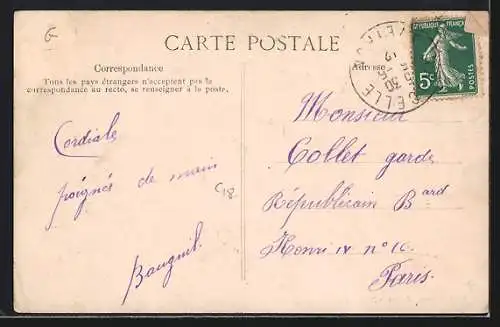 G
CARTE POSTALE
Correspondance
Tous les pays étrangers n'acceptent pas la
correspondance au recto, se renseigner à la poste.
Cordiale
poignés de main
C18
Bauguil.
Adresse
REPUBLIQUE FRANÇAISE
5c
POSTES
Monsieur
Collet garde
Républicain Bard
Henri IV nº 10
Paris.